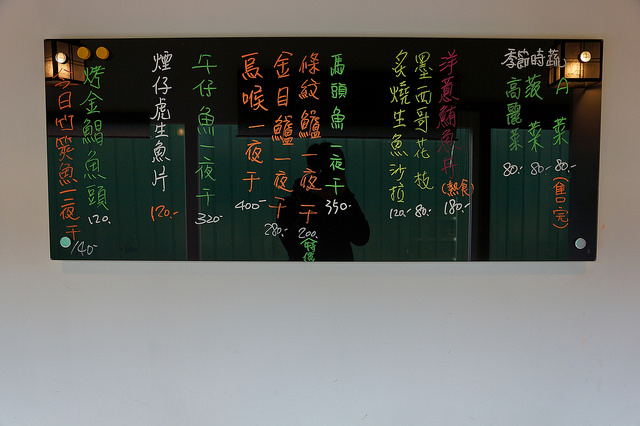 季節時蔬
A菜 80.-(售完)
菠菜 80.-
高麗菜 80.-
洋蔥鮪魚片(熟食) 180.-
墨西哥花枝 80.-
炙燒生魚沙拉 120.-
馬頭魚一夜干 350-
條紋鱸一夜干 200.特價
金目鱸一夜干 280.-
馬喉一夜干 400-
午仔魚一夜干 320-
煙仔虎生魚片 120.-
烤金鯧魚頭 120.
今日竹筴魚一夜干 140-